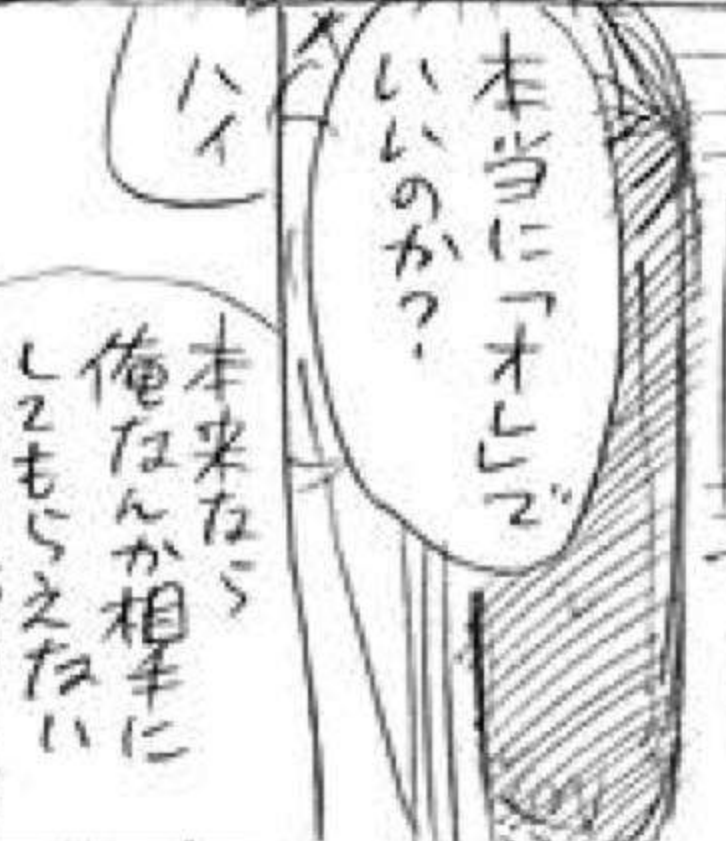 本当に「オレ」で
いいのか?
ハイ
本来なら
俺なんか相手に
してもらえない